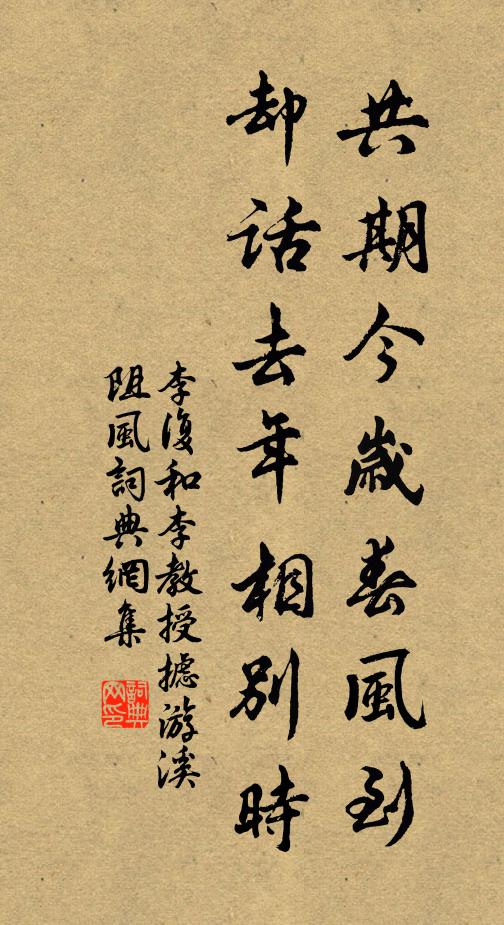 共期今歲春風到
却話去年相別時
李復和李教授摅游溪
阻風詞典網集
詞典网印